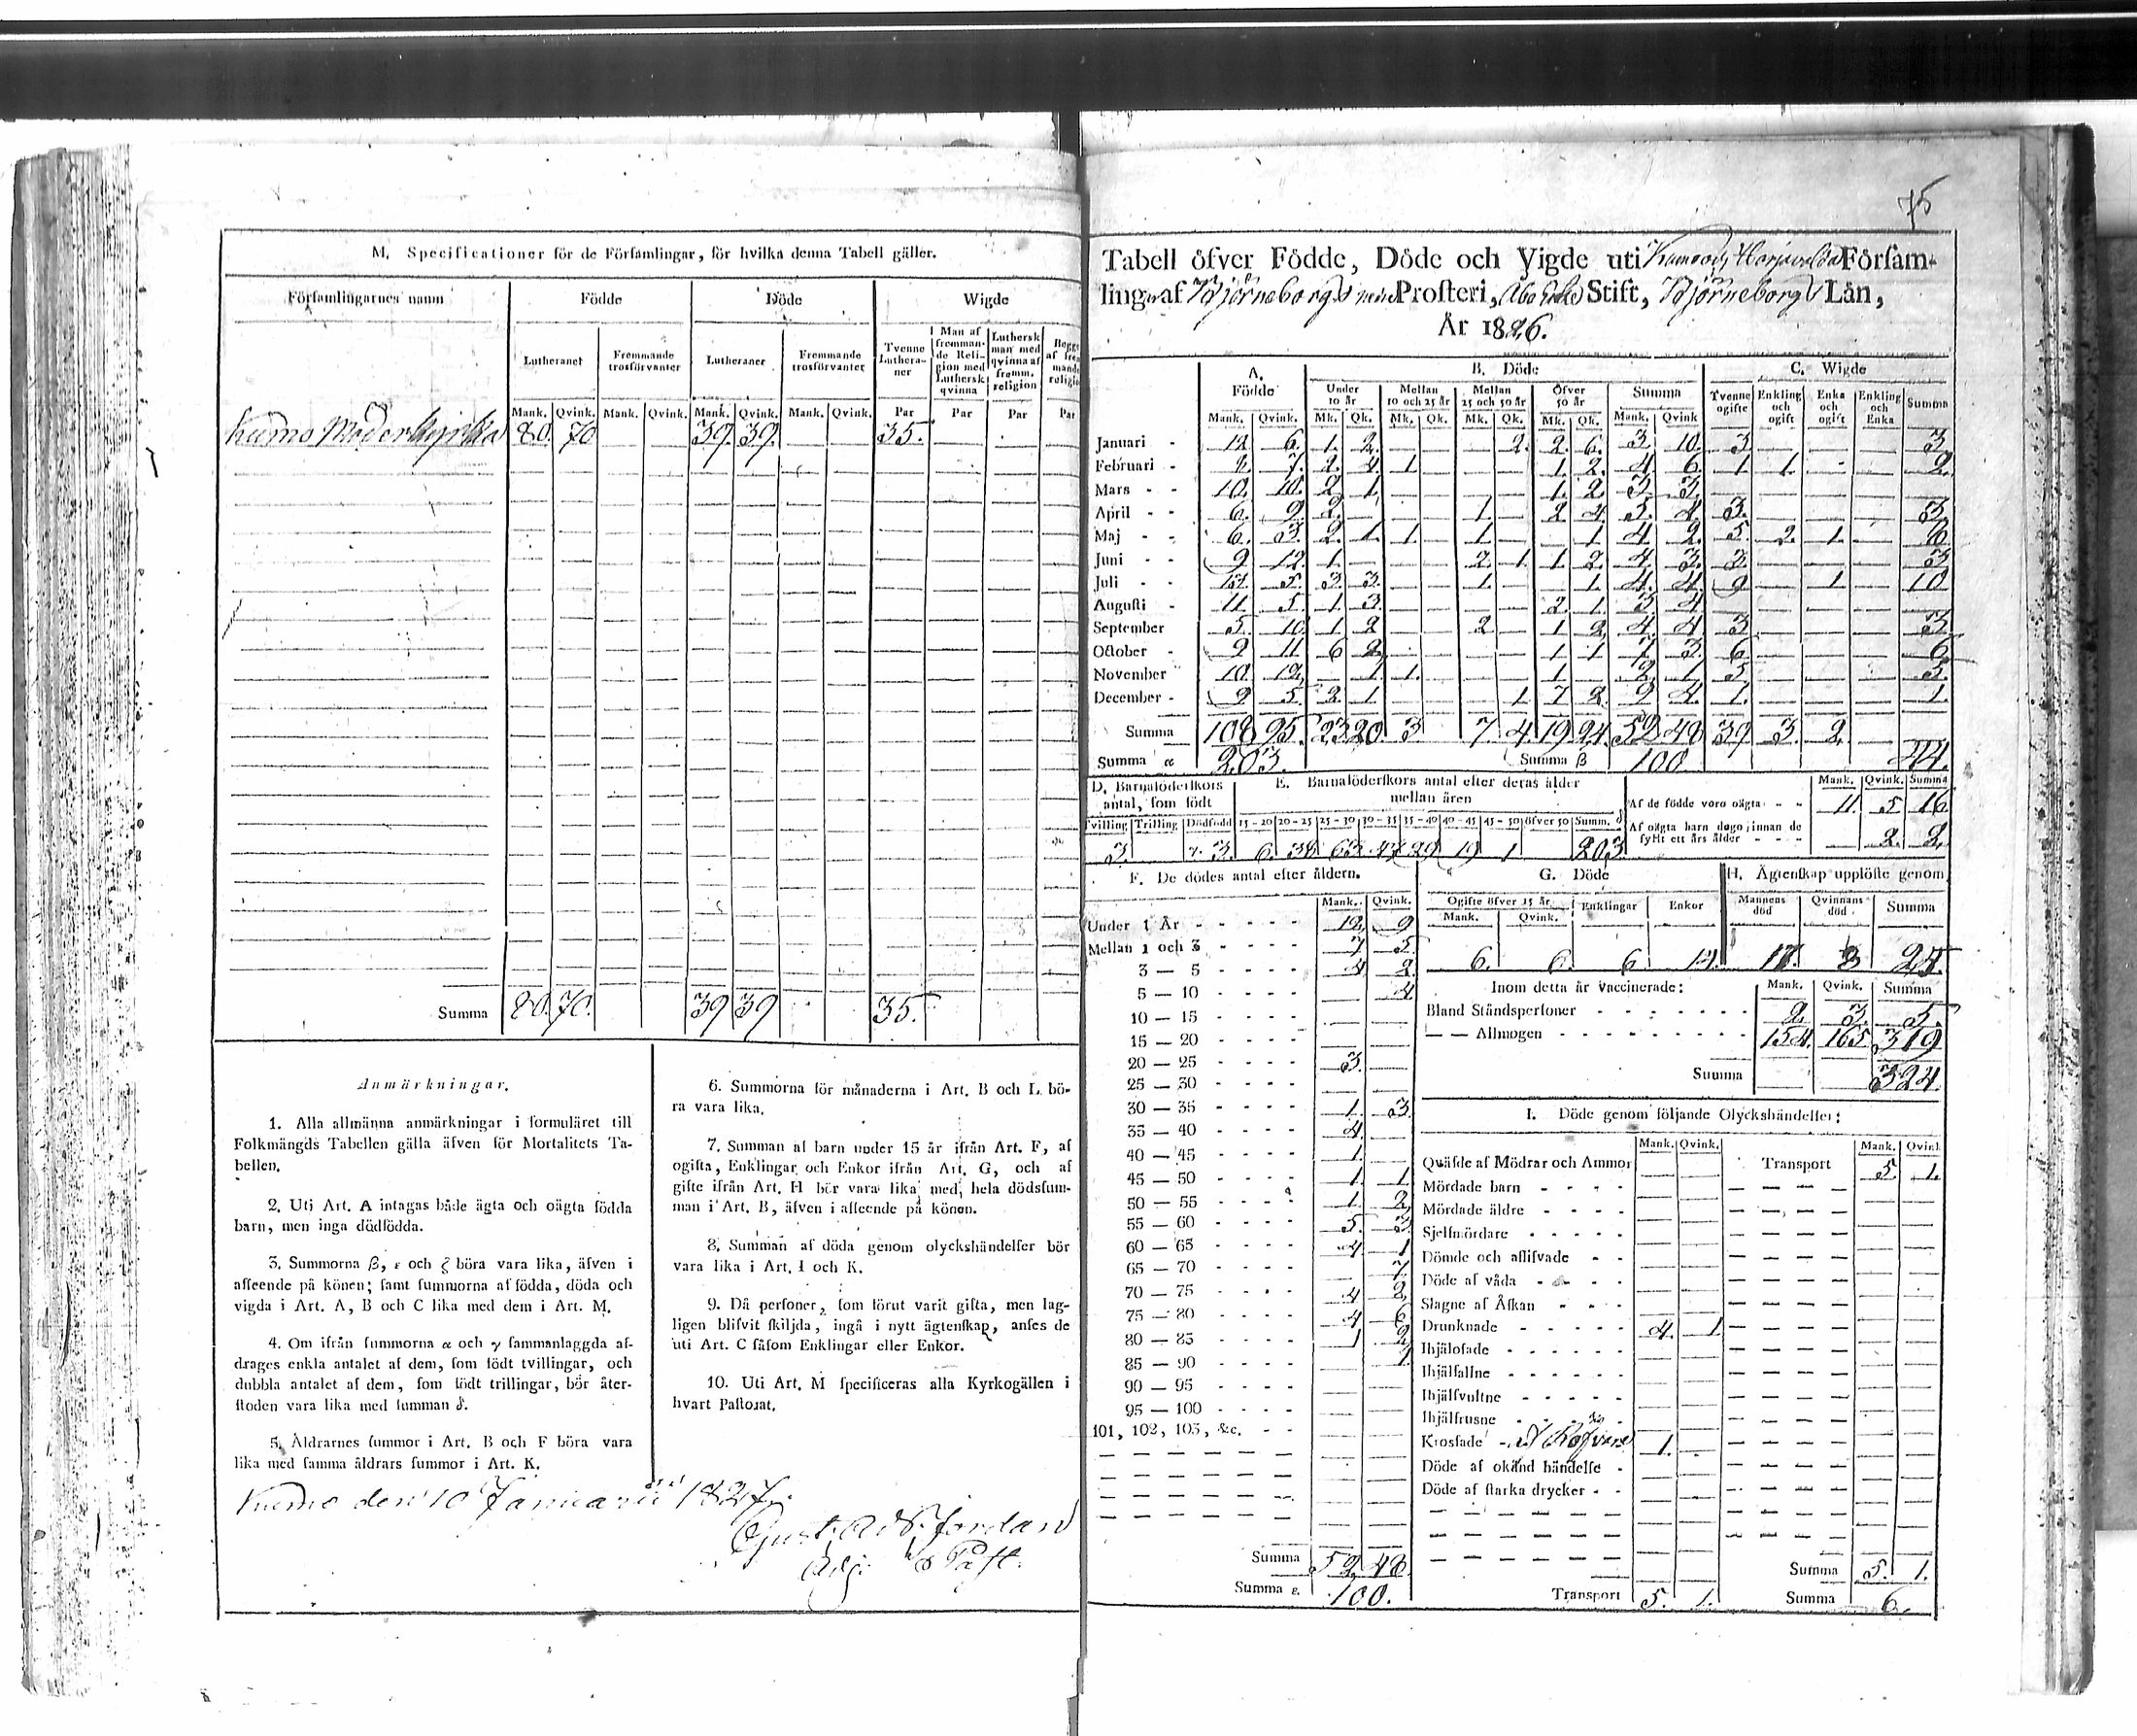 M. Specificationer för de Församlingar, för hvilka denna Tabell gäller.
Församlingarnes namn Födde Döde Wigde
Lutheraner Fremmande trosförvanter Lutheraner Fremmande trosförvanter Tvenne Lutheraner Man af fremmande Religion med Luthersk qvinna Luthersk man med qvinna af fremm. religion
Mank. Qvink. Mank. Qvink. Mank. Qvink. Mank. Qvink. Par Par Par Par
Kumo Moderkyrka 80. 70 39. 39. 35.
Summa 80. 70. 39 39 35.
Anmärkningar.
1. Alla allmänna anmärkningar i formuläret till
Folkmängds Tabellen gälla äfven för Mortalitets Ta-
bellen.
2. Uti Art. A intagas både ägta och oägta födda
barn, men inga dödfödda.
3. Summorna β, ε och ζ böra vara lika, äfven i
afseende på könen; samt summorna af födda, döda och
vigda i Art. A, B och C lika med dem i Art. M.
4. Om ifrån summorna α och γ sammanlaggda af-
drages enkla antalet af dem, som födt tvillingar, och
dubbla antalet af dem, som födt trillingar, bör åter-
stoden vara lika med summan δ.
5. Åldrarnes summor i Art. B och F böra vara
lika med samma åldrars summor i Art. K.
6. Summorna för månaderna i Art. B och L bö-
ra vara lika.
7. Summan af barn under 15 år ifrån Art. F, af
ogifta, Enklingar och Enkor ifrån Art. G, och af
gifte ifrån Art. H bör vara lika med hela dödssum-
man i Art. B, äfven i afseende på könen.
8. Summan af döda genom olyckshändelser bör
vara lika i Art. I och K.
9. Då personer, som förut varit gifta, men lag-
ligen blifvit skiljda, ingå i nytt ägtenskap, anses de
uti Art. C såsom Enklingar eller Enkor.
10. Uti Art. M specificeras alla Kyrkogällen i
hvart Pastorat.
Kumo den 10 Januarii 1827.
Gust. Ad. Sjordan
Adj. Past.
75
Tabell öfver Födde, Döde och Vigde uti Kumo och Harjavalda Försam-
lingar af Björneborgs nedre Prosteri, Åbo Erke Stift, Björneborgs Län,
År 1826.
A. Födde B. Döde C. Wigde
Under 10 år Mellan 10 och 25 år Mellan 25 och 50 år Öfver 50 år Summa Tvenne ogifte Enkling och ogift Enka och ogift Enkling och Enka Summa
Mank. Qvink. Mk. Qk. Mk. Qk. Mk. Qk. Mk. Qk. Mank. Qvink
Januari 12 6. 1. 2. 2. 2. 6. 3. 10. 3 3
Februari 7. 2. 1 1. 2. 4. 6. 1 1. 2.
Mars 10. 10. 2 1. 1. 2. 3. 3.
April 6. 9 2. 1. 2 4 5. 4 3. 3
Maj 6. 3. 2. 1. 1. 1. 1. 4 2. 5 2. 1. 8
Juni 9 12. 1. 2. 1. 1. 2. 4. 3. 3. 3
Juli 5 3 3. 1. 1. 4. 4. 9 1. 10
Augusti 11. 5. 1. 3. 2. 1. 3 4
September 5. 10. 1 2 2 1 2 4. 4 3 3
October 9 11 6 2 1 1 7 3. 6 6
November 10. 12. 1 1. 1. 2 1 5 5.
December 9 5. 2 1. 1. 7 2. 9 4. 1. 1.
Summa 108 95. 23 20. 3 7. 4. 19 24. 52 48 39 3. 2.
Summa α 203. Summa β 100. 44.
D. Barnaföderskors antal, som födt E. Barnaföderskors antal efter deras ålder mellan åren
Tvilling Trilling Dödfödd 15-20 20-25 25-30 30-35 35-40 40-45 45-50 öfver 50 Summ. δ
3. γ. 3. 6. 38 63. 47 29 17 1 203
Mank. Qvink. Summa
Af de födde voro oägta 11. 5 16
Af oägta barn dogo innan de fyllt ett års ålder 2. 2.
F. De dödes antal efter åldern.
Mank. Qvink.
Under 1 År 12 9
Mellan 1 och 3 7 5
3 — 5 4 2
5 — 10 4
10 — 15
15 — 20
20 — 25 3.
25 — 30
30 — 35 1. 3
35 — 40 4.
40 — 45 1.
45 — 50 1. 1
50 — 55 1. 2
55 — 60 5. 3
60 — 65 4. 1
65 — 70 7.
70 — 75 4 2
75 — 80 4 6
80 — 85 1 2
85 — 90 1.
90 — 95
95 — 100
101, 102, 103, &c.
Summa 52 48
Summa ε. 100.
G. Döde
Ogifte öfver 15 år Enklingar Enkor
Mank. Qvink.
6. 6. 6
H. Ägtenskap upplöste genom
Mannens död Qvinnans död Summa
17. 8 25.
Inom detta år Vaccinerade: Mank. Qvink. Summa
Bland Ståndspersoner 2. 3. 5.
— — Allmogen 154. 165 319
Summa 324.
I. Döde genom följande Olyckshändelser:
Mank. Qvink. Mank. Qvink
Quäfde af Mödrar och Ammor Transport 5 1.
Mördade barn
Mördade äldre
Sjelfmördare
Dömde och aflifvade
Döde af våda
Slagne af Åskan
Drunknade 4. 1
Ihjälosade
Ihjälfallne
Ihjälsvultne
Ihjälfrusne
Krossade 1.
Döde af okänd händelse
Döde af starka drycker
Transport 5. 1.
Summa 5. 1.
Summa 6.